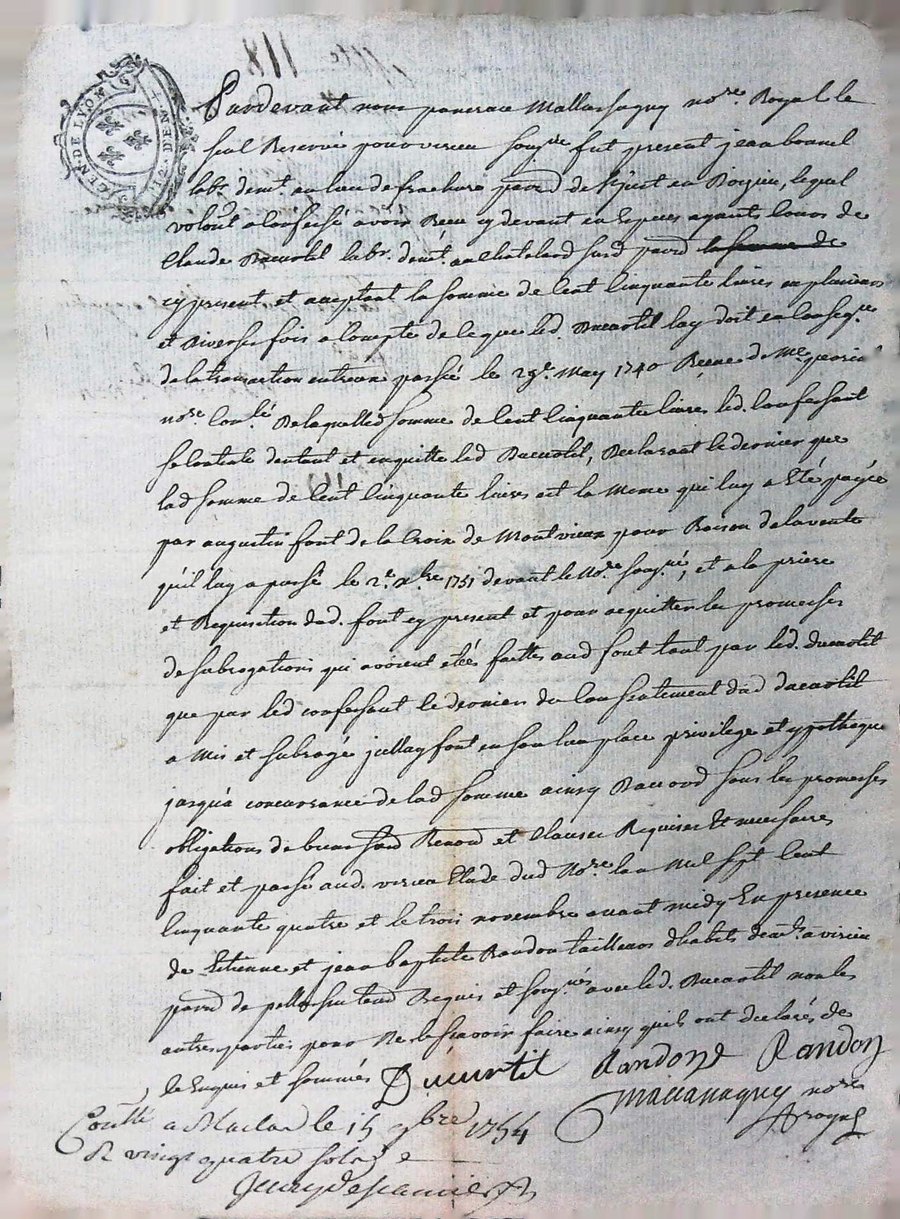 GEN. DE LYON
Pardevant nous pancrace Mallassagny no.re Royal le
seul Reservé pour virieu sousg.né fut present jean bonnel
lab.r dem.t au lieu de frachure parr.e de s.t just en Doizieu, lequel
volont.t a Confessé avoir Receu cy devant en Especes ayants Cours de
Claude Ducurtil lab.r dem.t au Chatelard susd parr.e la somme de
cy present et acceptant la somme de Cent Cinquante livres en plusieurs
et Diverses fois a Compte de ce que led. Ducurtil luy doit en Conseq.ce
de la transaction entreux passée le 29.e May 1740 Receue de M.e
no.re Con.lé De laquelle somme de Cent Cinquante livres led. Confessant
se Contente dautant et en quitte led Ducurtil, Declarant le dernier que
lad somme de Cent Cinquante livres est la Meme qui luy a Eté payée
par augustin font de la Croix de Montvieux pour Raison de la vente
qu'il luy a passé le 2.e Xbre 1751 devant le No.re sousg.né, et a la priere
et Requisition dud. font cy present et pour acquitter les promesses
de subrogations qui avoient étéé faittes aud font tant par led. ducurtil
que par led confessant le dernier du Consentement dud ducurtil
a Mis et subrogé icelluy font en son lieu place privilege et ypotheque
jusqu'a concurrance de lad somme ainsy Daccord sous les promesses
obligations de biens Renon et Clauses Requises Et necessaires
fait et passé aud. virieu Etude dud No.re lan Mil sept Cent
Cinquante quatre et le trois novembre avant midy En presence
de Etienne et jean baptiste Randon tailleurs dhabits dem.ts a virieu
parr.e de pellussin temd Requis et sousg.nés avec led. Ducurtil non les
autres parties pour Ne le scavoir faire ainsy qu'ils ont declarés de
ce Enquis et sommés Ducurtil Randon Randon
Mallassagny no.re
Royal
Con.llé a Maclas le 15 9bre 1754
R vingt quatre sols